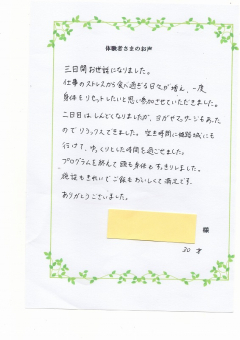 体験者さまのお声
三日間お世話になりました。
仕事のストレスから食べ過ぎる日々が増え、一度
身体もリセットしたいと思い参加させていただきました。
二日目はしんどくなりましたが、ヨガやマッサージもあった
のでリラックスできました。空き時間に姫路城にも
行けて、ゆっくりとした時間を過ごせました。
プログラムを終えて頭も身体もすっきりしました。
施設もきれいでご飯もおいしくて満足です。
ありがとうございました。
様
30 才